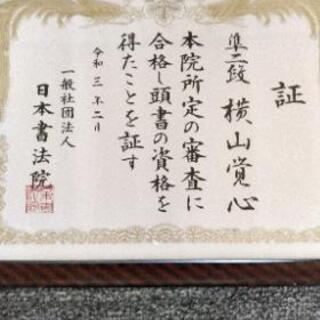 証
準二段 横山覚心
本院所定の審査に
合格し頭書の資格を
得たことを証す
令和三年二月
一般社団法人
日本書法院